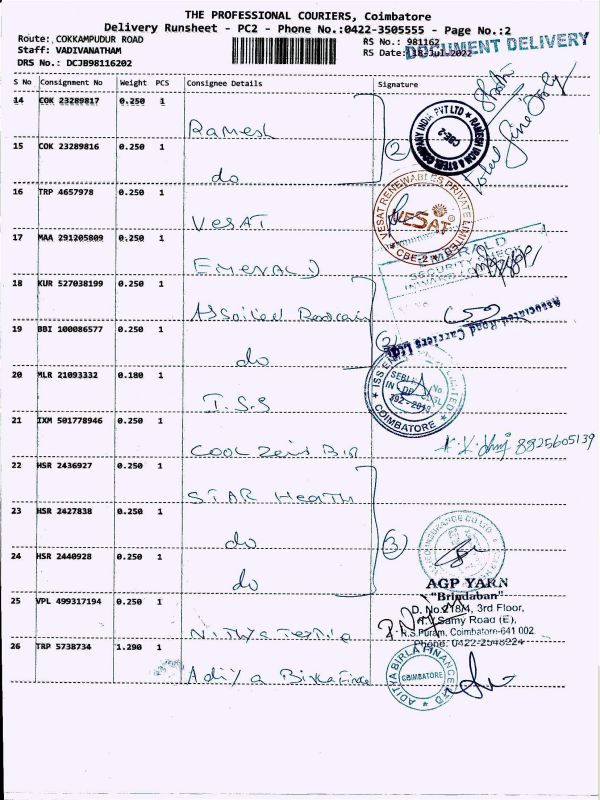 THE PROFESSIONAL COURIERS, Coimbatore
Delivery Runsheet - PC2 - Phone No.:0422-3505555 - Page No.:2
Route: COKKAMPUDUR ROAD
RS No.: 981162
DOCUMENT DELIVERY
Staff: VADIVANATHAM
RS Date: 18-Jul-2022
DRS No.: DCJB98116202
S No Consignment No Weight PCS Consignee Details Signature
14 COK 23289817 0.250 1
Ramesh
RAMESH IRON & STEEL COMPANY INDIA PVT LTD
CBE-2
2
15 COK 23289816 0.250 1
do
16 TRP 4657978 0.250 1
VESAT
VESAT RENEWABLES PRIVATE LIMITED
VESAT
CBE-2
17 MAA 291205809 0.250 1
EMERALD
EMERALD
SECURITY
18 KUR 527038199 0.250 1
Associated Road Carriers Ltd.
19 BBI 100086577 0.250 1
do
2
20 MLR 21093332 0.180 1
I.S.S
COIMBATORE
21 IXM 501778946 0.250 1
8825605139
22 HSR 2436927 0.250 1
STAR Health
23 HSR 2427838 0.250 1
do
3
24 HSR 2440928 0.250 1
do
AGP YARN
"Brindaban"
D. No.218/1, 3rd Floor,
T.V.Samy Road (E),
25 VPL 499317194 0.250 1
R.S.Puram, Coimbatore-641 002
Phone: 0422-2548224
Nithya Textile
26 TRP 5738734 1.290 1
Aditya Birla Finance
ADITYA BIRLA FINANCE LTD
COIMBATORE